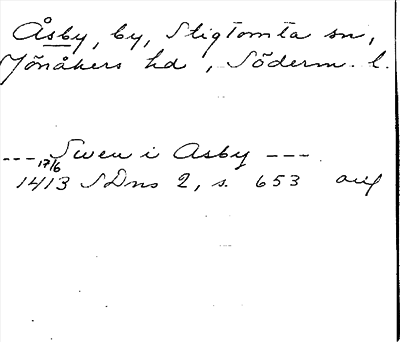 Åsby, by, Stigtomta sn,
Jönåkers hd, Söderm. l.
--- Swen i Asby ---
17/6
1413 SDns 2, s. 653 avg